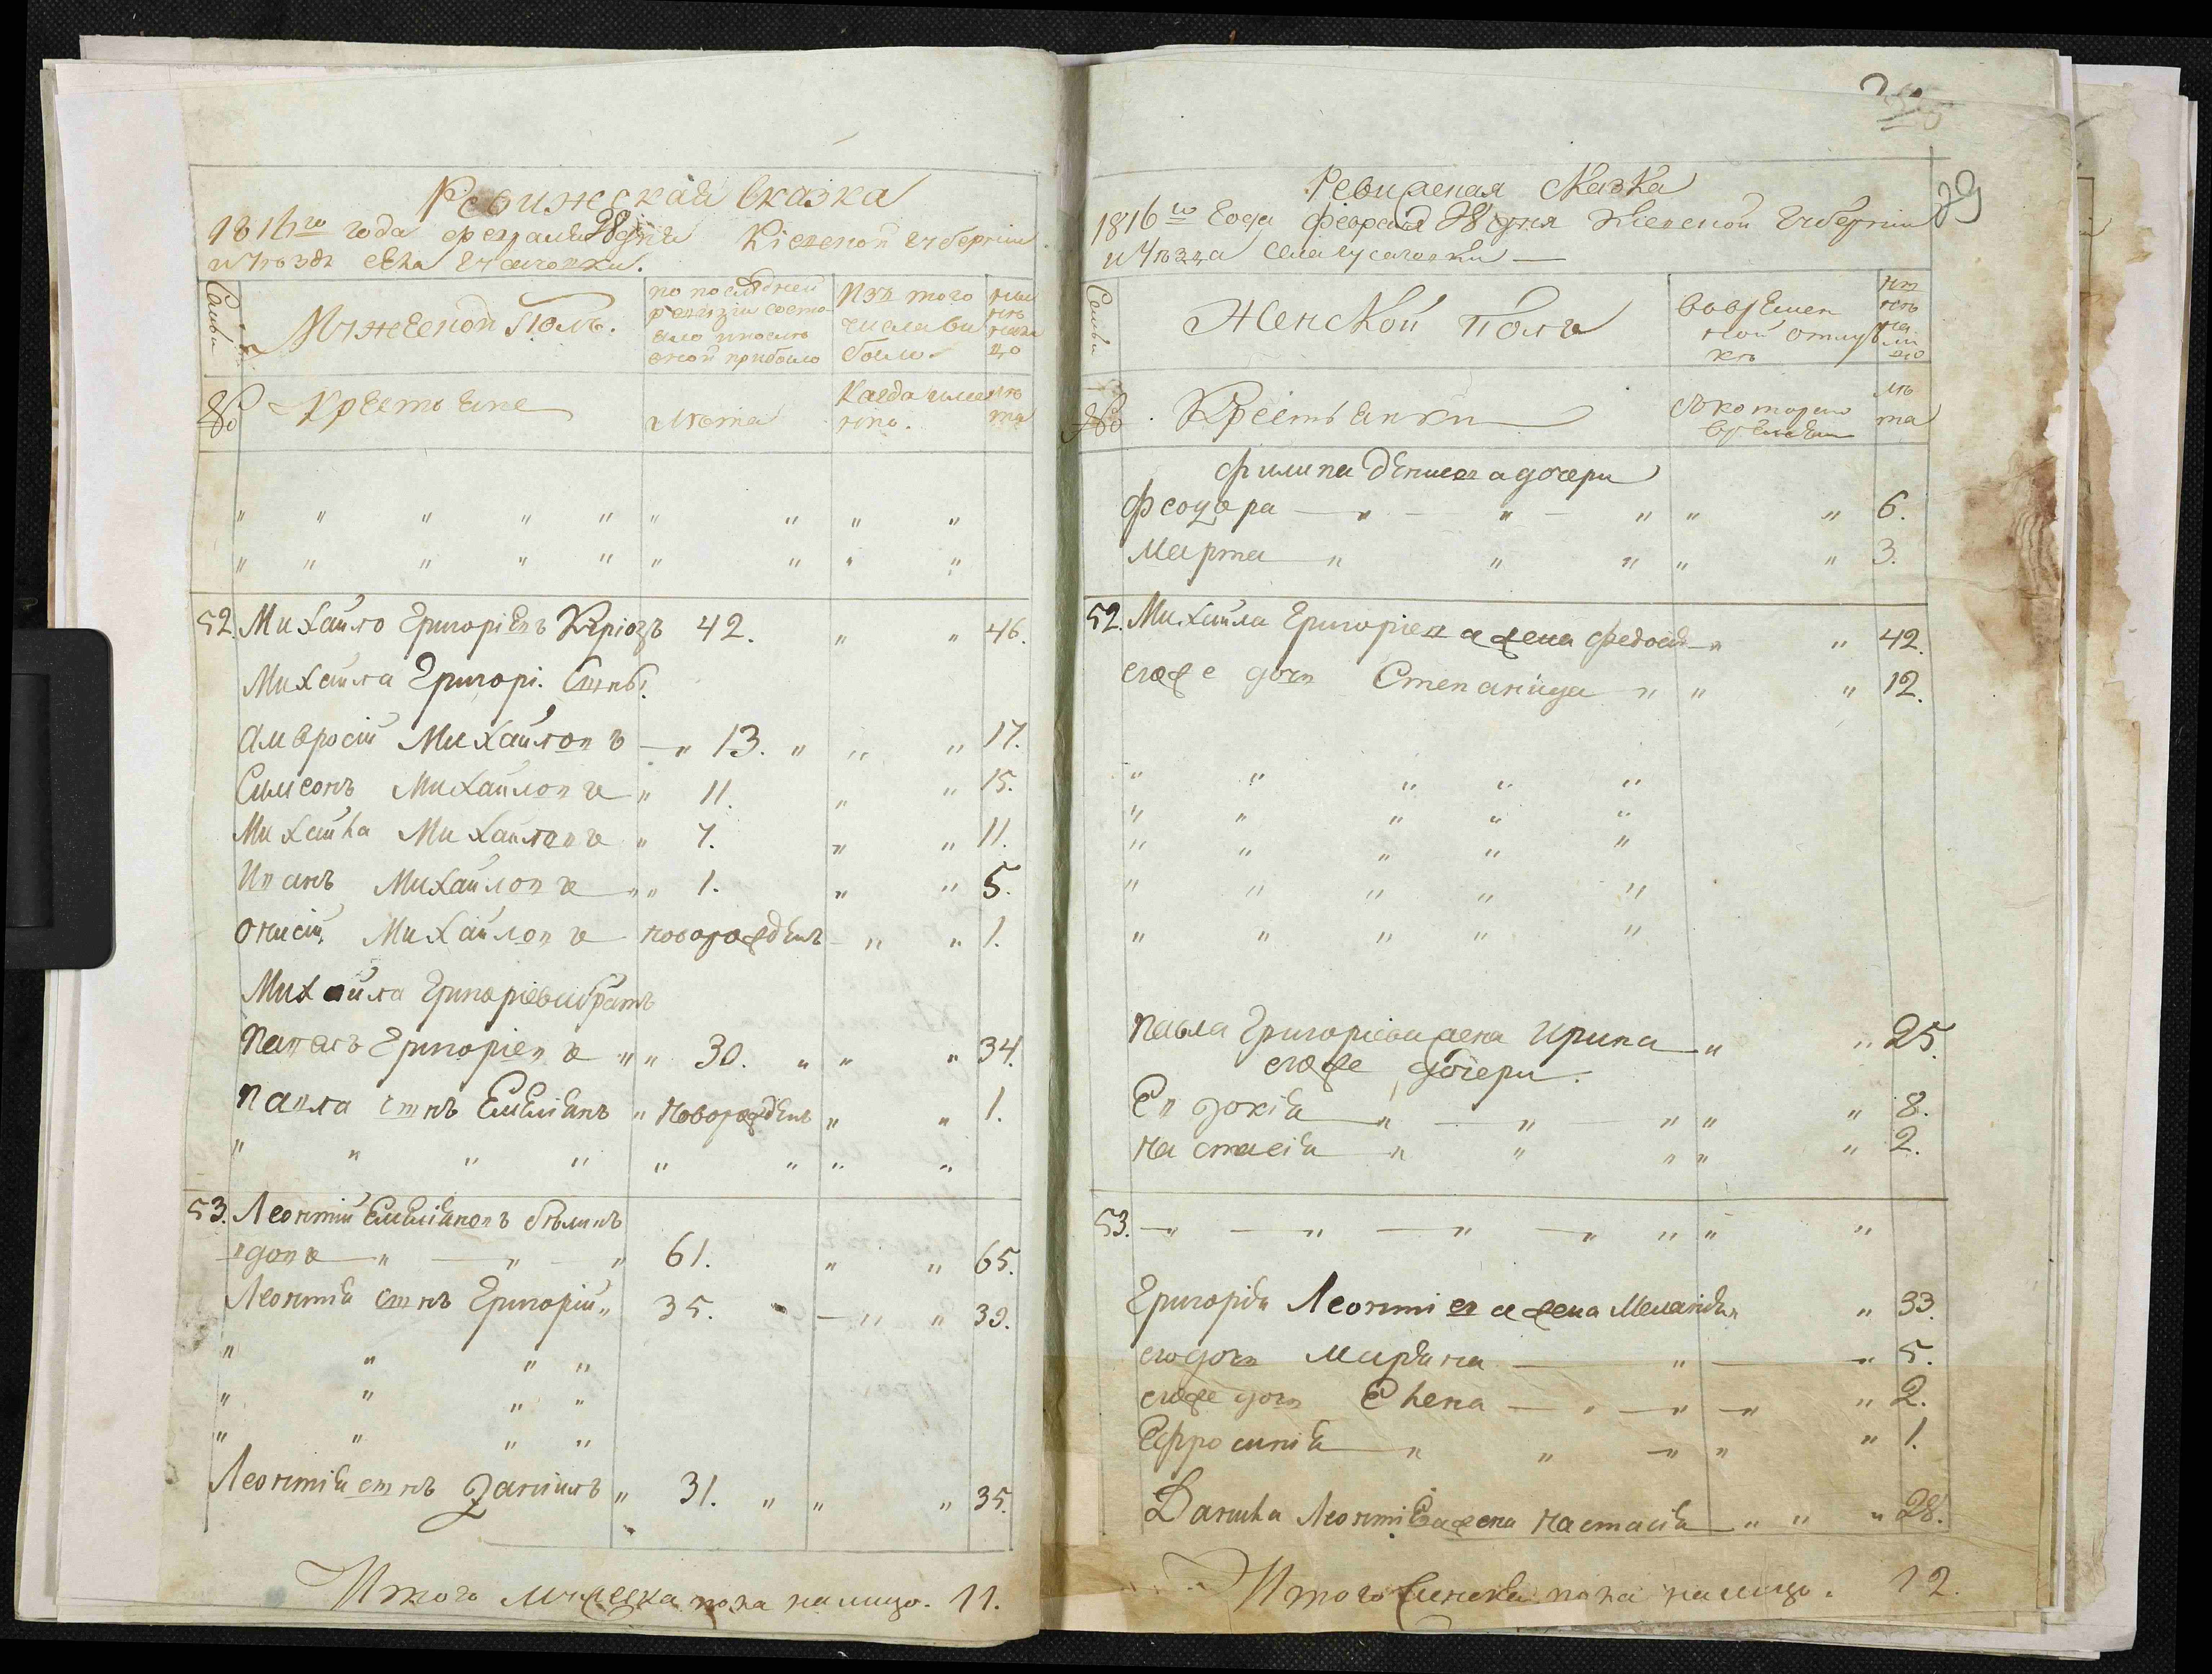 Ревижская сказка
1816го года февраля 28 дня Кіевской губерніи
и уѣзда села Гусачовки.
Семьи
Мужеской Полъ.
по последней ревизіи состояло и после оной прибыло
Изъ того числа выбыло
ныне налицо
№
Крестьяне
лета
Когда именно.
лета
52. Михайло Григоріевъ 42. " " 46.
Михайла Григорі. Сынъ.
Амвросій Михайловъ — " 13. " " " 17.
Сымеонъ Михайловъ " 11. " " 15.
Михайла Михайловъ " 7. " " 11.
Иванъ Михайловъ " " 1. " " 5.
Онисій Михайловъ новорожденъ " " 1.
Михайла Григоріева братъ
Павелъ Григоріевъ " " 30. " " " 34.
Павла сынъ Емеліянъ " новорожденъ " " 1.
53. Леонтій Емеліяновъ
вдовъ — " — " — " 61. " " 65.
Леонтія сынъ Григорій " 35. " " " 39.
Леонтія сынъ Даніилъ " 31. " " " 35.
Итого мужеска пола налицо. 11.
29
Ревижская сказка
1816го Года февраля 28 дня Кіевской Губерніи
и Уѣзда села Гусачовки —
Семьи
Женской Полъ
Во временной отлучке
ныне налицо
№
Крестьянки
Съ котораго времени
лета
Филипа Денисова дочери
Феодора — " — " — " " " 6.
Марта " " " " " 3.
52. Михайла Григоріева жена Федосія " " 42.
егоже дочь Степанида " " " 12.
Павла Григоріева жена Ирина — " " 25.
егоже дочери.
Евдокія " — " — " " " 8.
Настасія " " " " " 2.
53. — " — " — " — " " " "
Григорія Леонтіева жена Меланія " " 33.
его дочь Маряна — " — " 5.
егоже дочь Елена — " — " — " " 2.
Ефросинія " " — " " " 1.
Данила Леонтіева жена Настасія — " " " 28.
Итого женска пола налицо. 12.